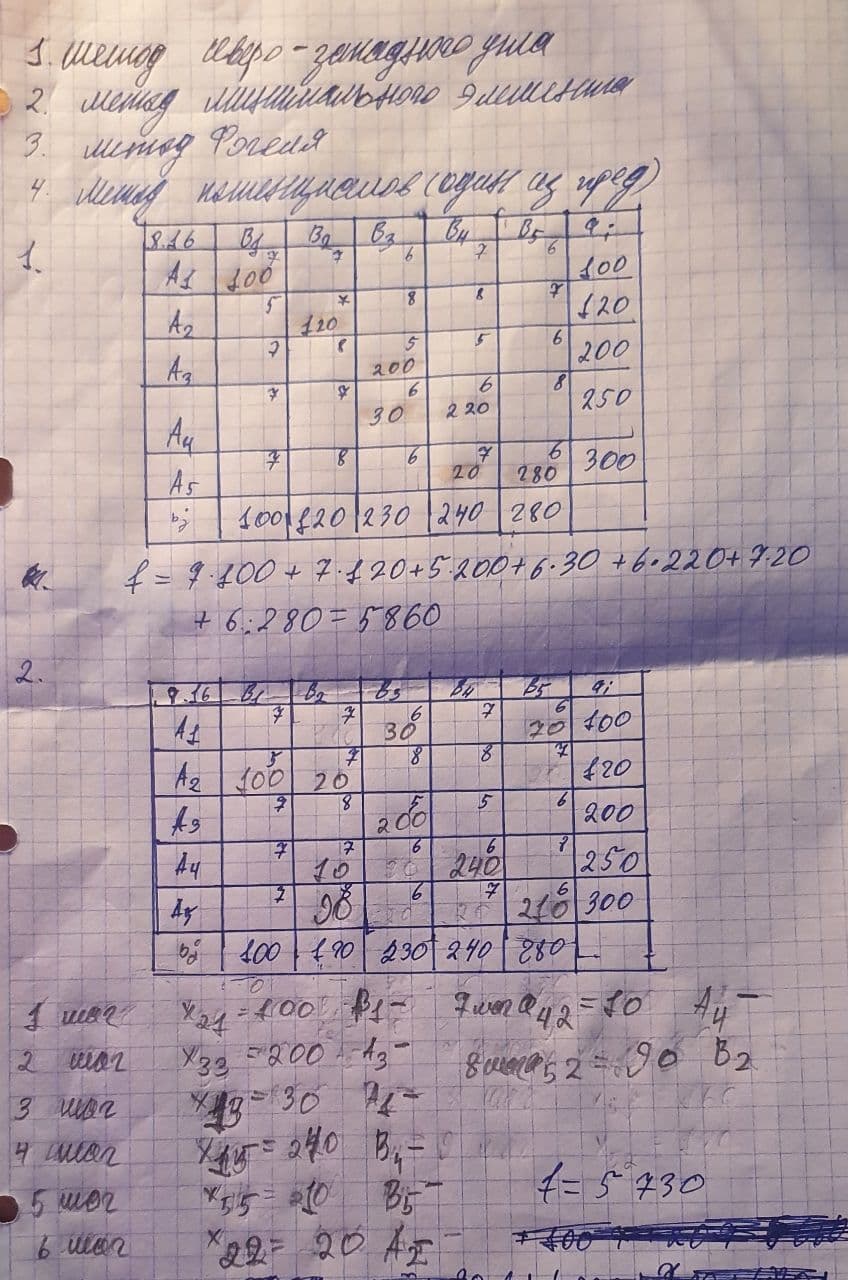 1. Метод северо-западного угла
2. метод минимального элемента
3. метод Фогеля
4. Метод потенциалов (один из пред)
1.
8.16 B1 B2 B3 B4 B5 ai
A1 7 100 7 6 7 6 100
A2 5 7 120 8 8 7 120
A3 7 8 5 200 5 6 200
A4 7 7 6 30 6 220 8 250
A5 7 8 6 7 20 6 280 300
bj 100 120 230 240 280
f = 7·100 + 7·120+5·200+6·30+6·220+7·20
+ 6·280=5860
2.
8.16 B1 B2 B3 B4 B5 ai
A1 7 7 6 30 7 6 70 100
A2 5 100 7 20 8 8 7 120
A3 7 8 5 200 5 6 200
A4 7 7 10 6 6 240 8 250
A5 7 8 90 6 7 6 210 300
bj 100 120 230 240 280
1 шаг x21=100 B1- 7 шаг 42=10 A4-
2 шаг x33=200 A3- 8 шаг 52=90 B2
3 шаг x13=30 A1-
4 шаг x15=240 B4-
5 шаг x55=210 B5-
f= 5730
6 шаг x22= 20 A2-